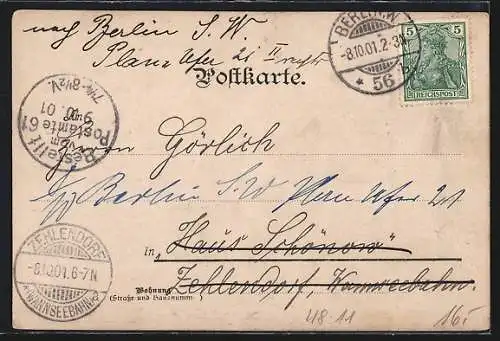 nach Berlin S. W.
Plan-Ufer 21 II rechts
Postkarte.
BERLIN.W.
-8.10.01.2-3N.
* 56
5 5
REICHSPOST
Bestellt
vom
Postamte 61
9/10. 01
7¼-8½V.
Herrn Görlich
Berlin S. W. Plan Ufer 21
in „Haus Schönow“
Zehlendorf, Wannseebahn.
Wohnung
(Straße und Hausnummer)
ZEHLENDORF
-8.10.01.6-7N
(WANNSEEBAHN)
4811
16.-